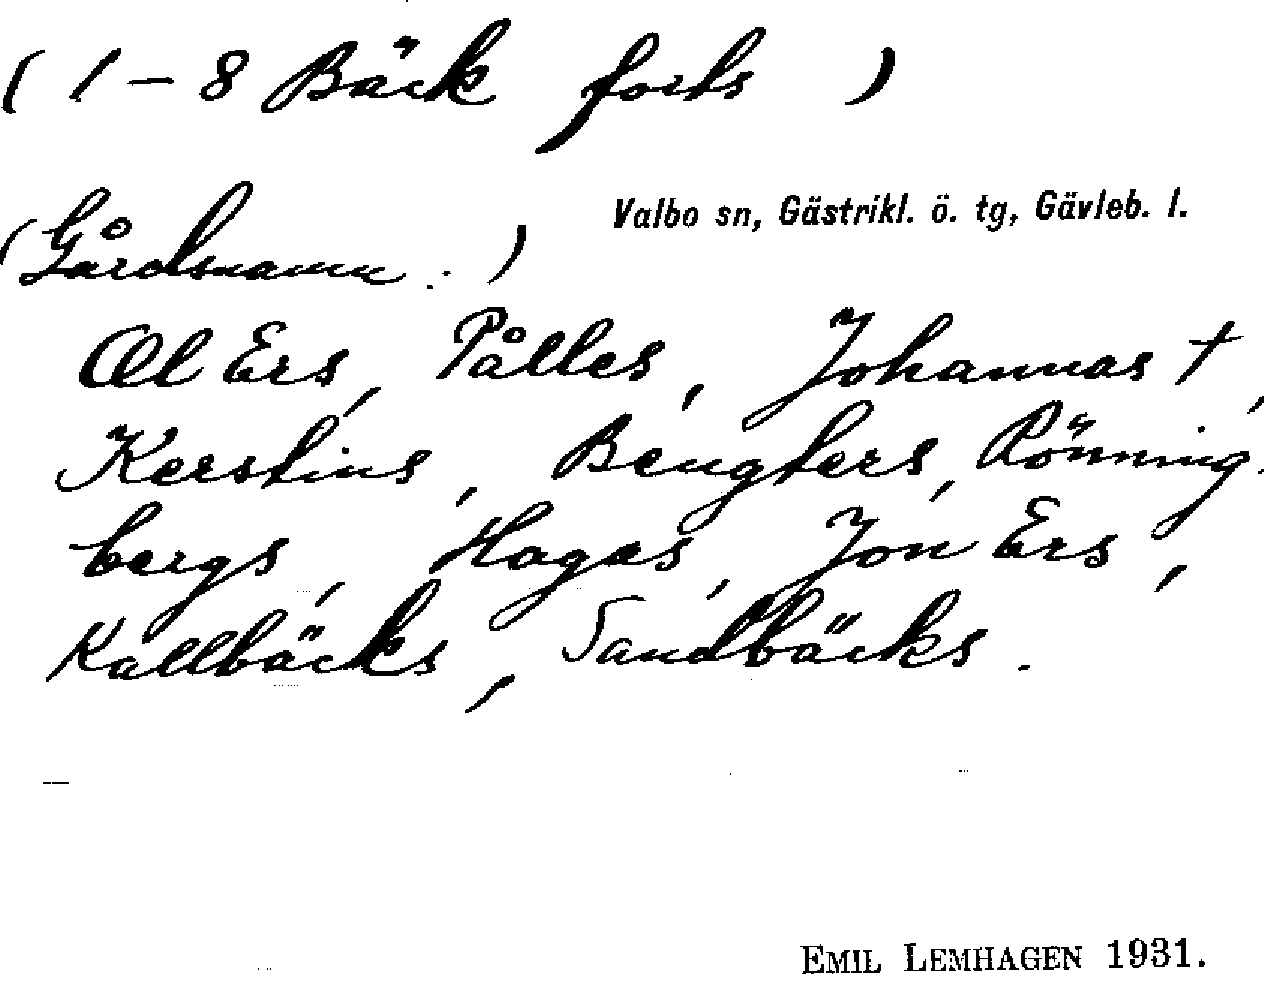 ( 1 – 8 Bäck forts )
Valbo sn, Gästrikl. ö. tg, Gävleb. l.
(Gårdsnamn . )
Ol Ers, Pålles, Johannas †,
Kerstins, Bengters, Rönning-
bergs, Hagas, Jon Ers,
Kallbäcks, Sandbäcks.
EMIL LEMHAGEN 1931.